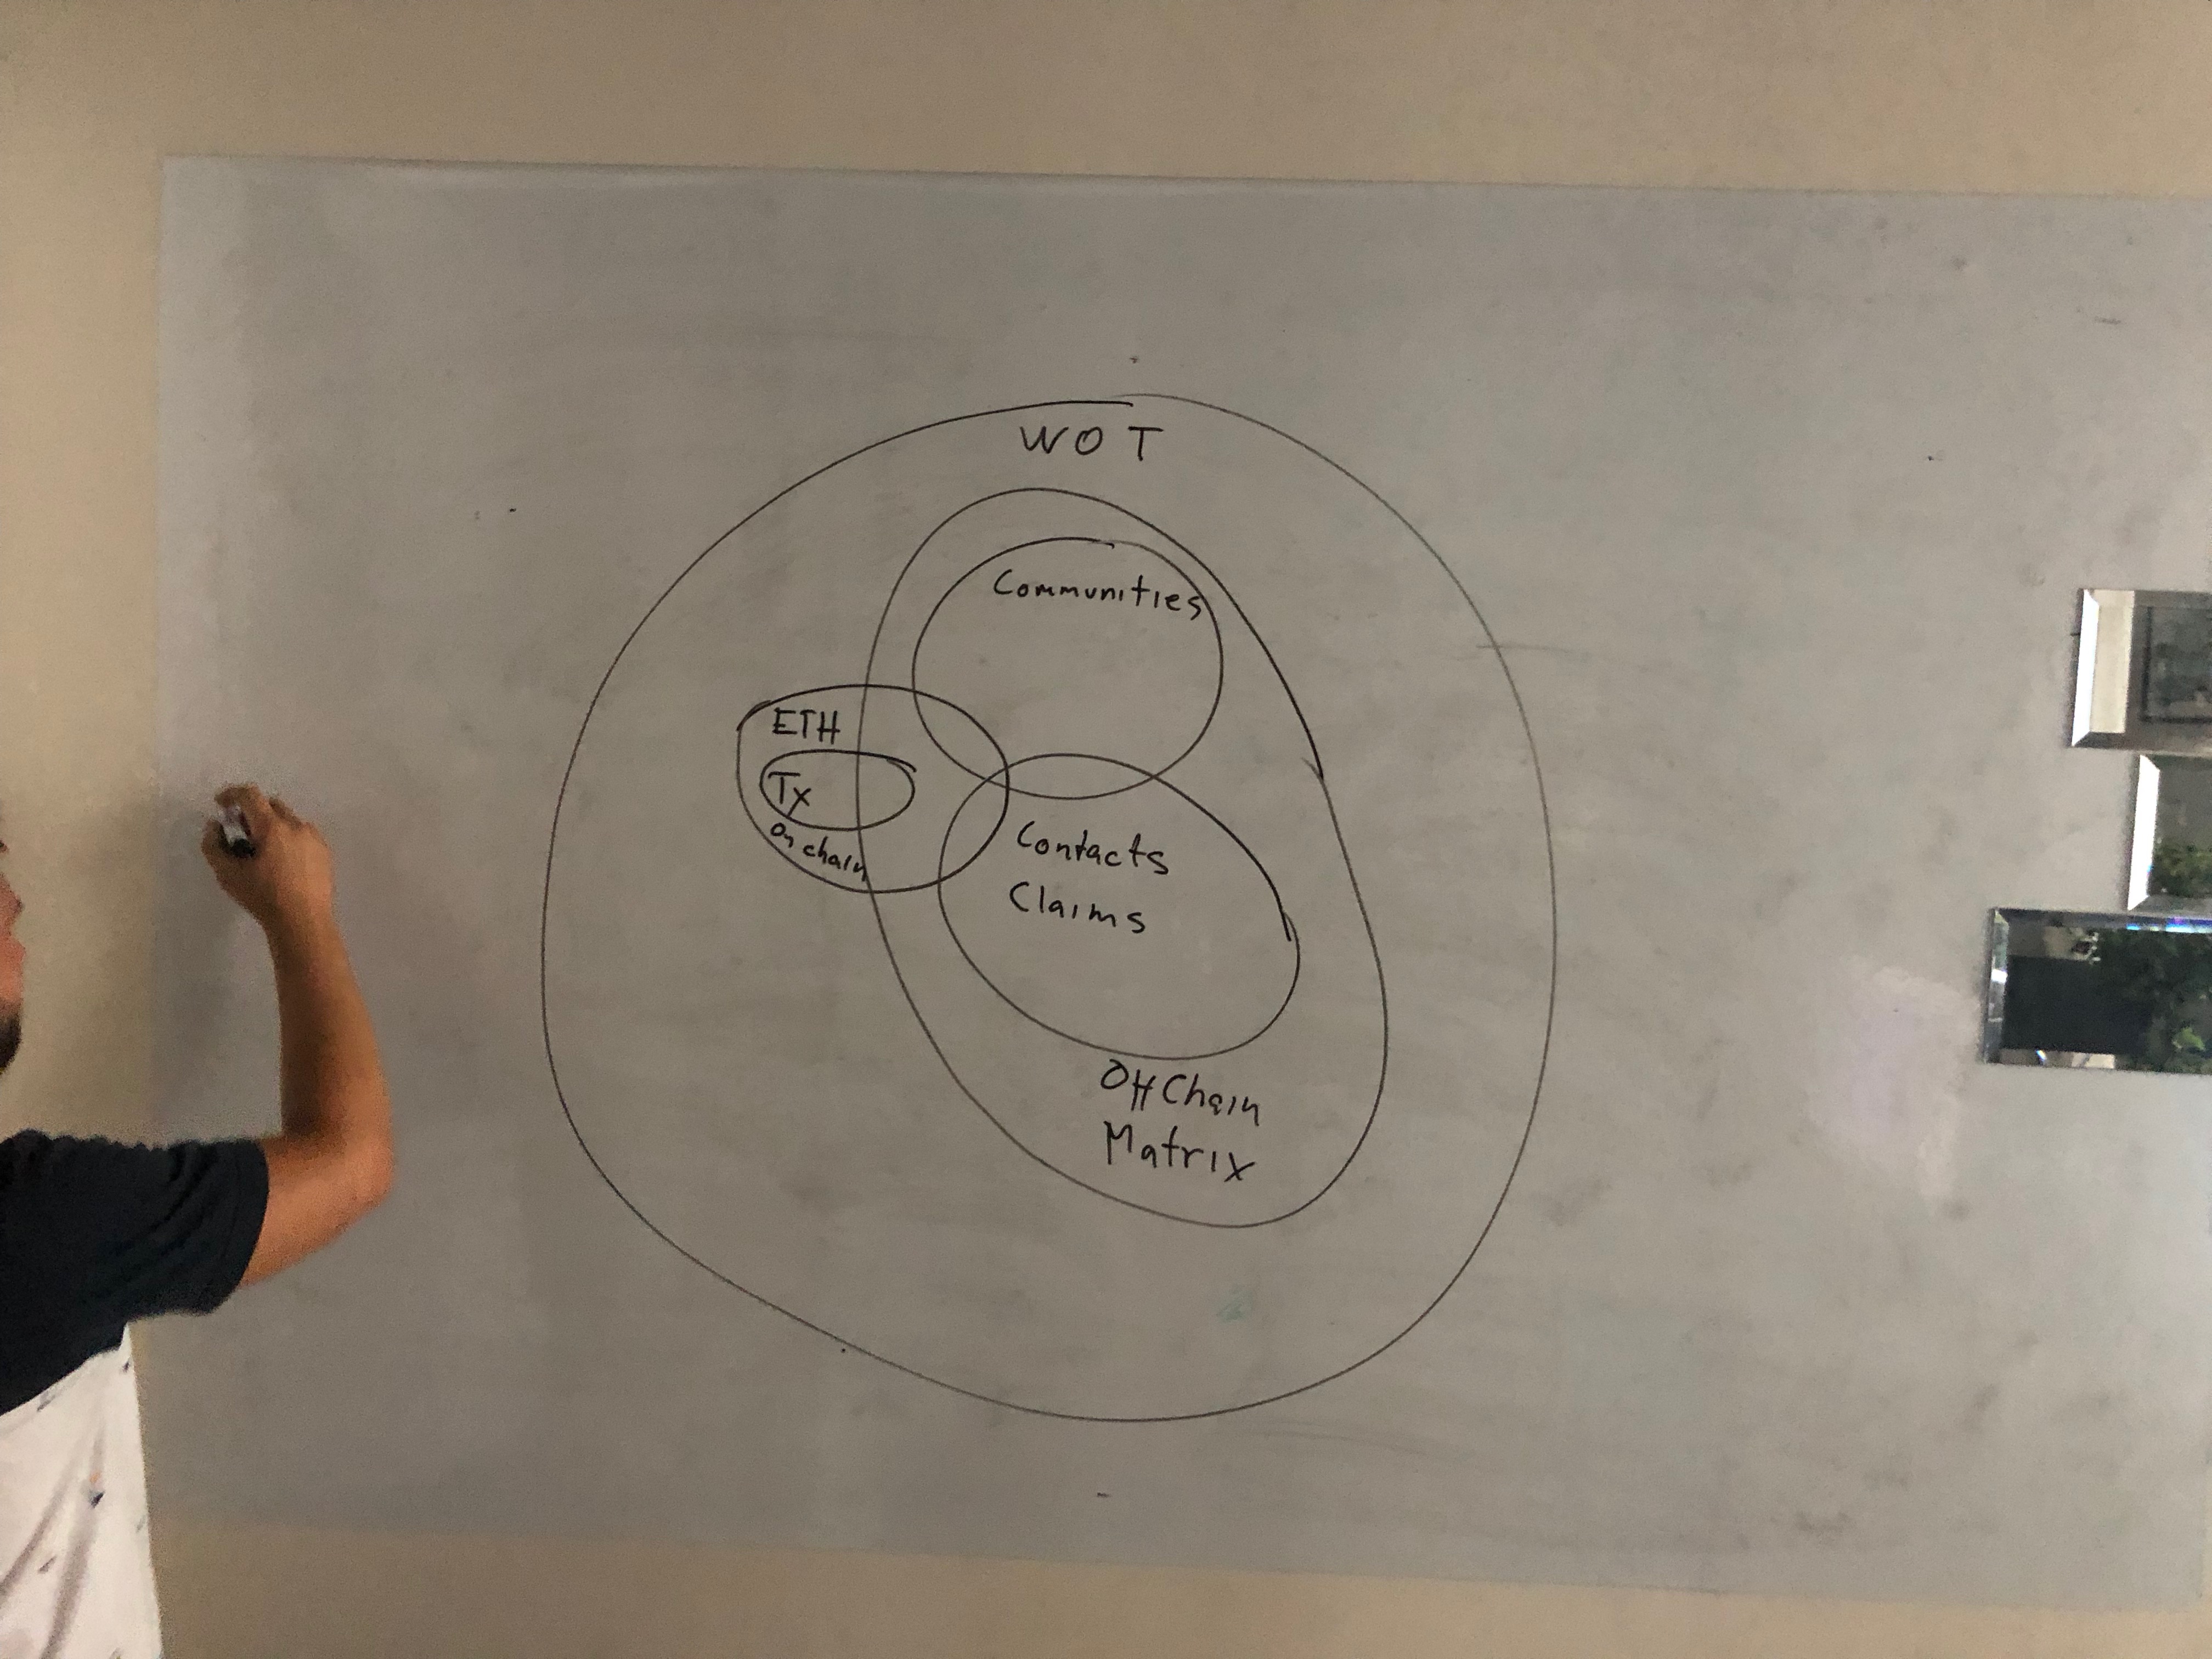 WOT
Communities
ETH
Tx
on chain
Contacts
Claims
Off Chain
Matrix